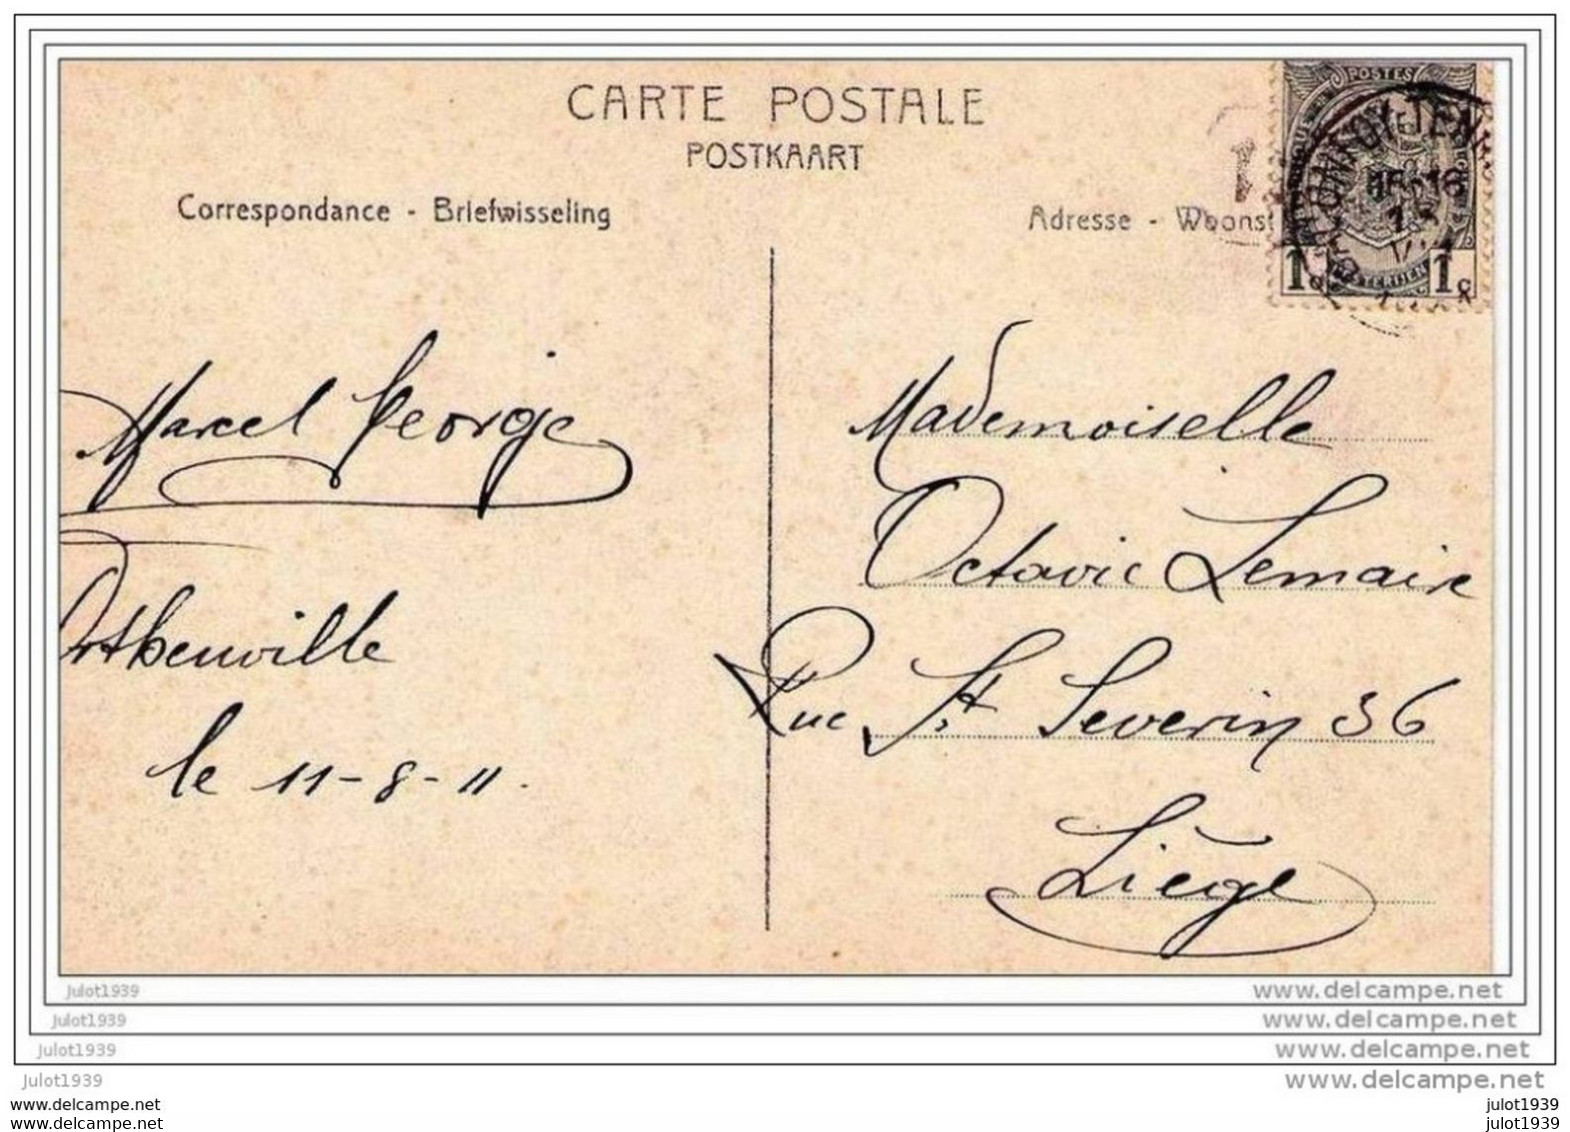 CARTE POSTALE
POSTKAART
Correspondance - Briefwisseling
Adresse - Woonst
POSTES
1c 1c
Marcel George
Ortheuville
le 11-8-11.
Mademoiselle
Octavie Lemaire
Rue St Severin 36
Liège
Julot1939
www.delcampe.net
Julot1939
www.delcampe.net
julot1939
www.delcampe.net
julot1939
www.delcampe.net
www.delcampe.com
julot1939
www.delcampe.com
julot1939